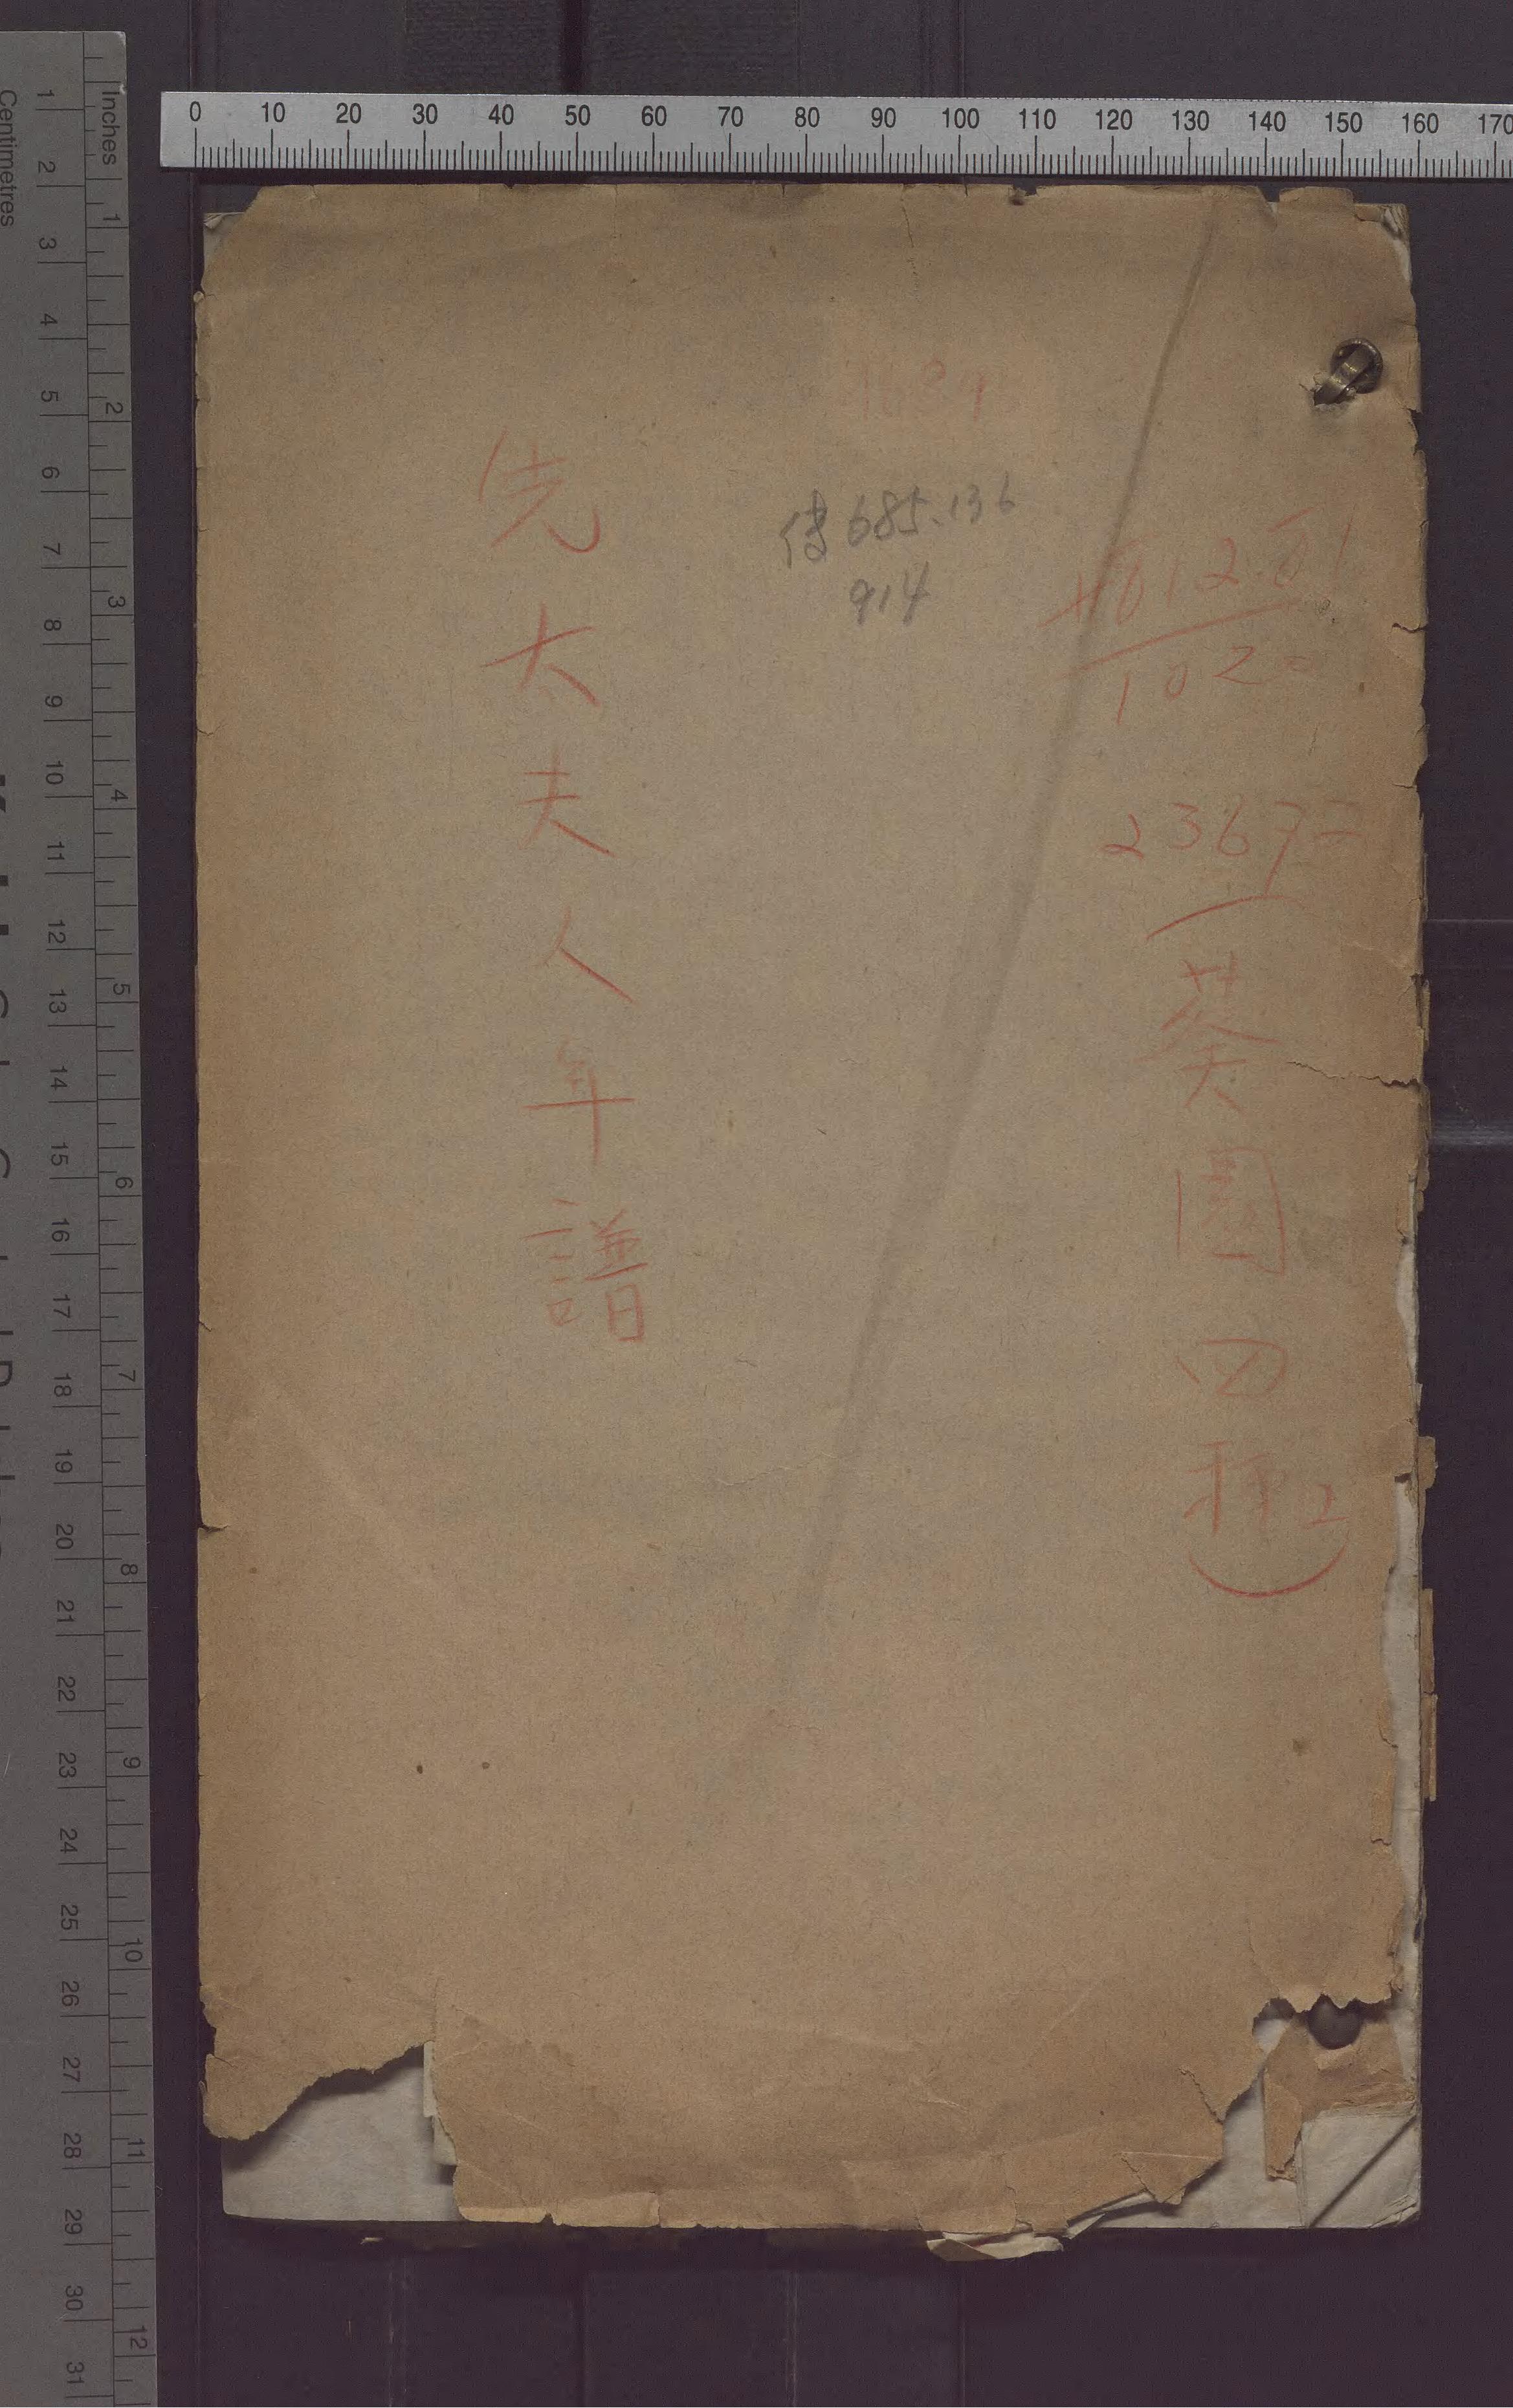 先大夫人年譜
685.136
914
1020
2367
葵園四種2
Inches
Centimetres
0 10 20 30 40 50 60 70 80 90 100 110 120 130 140 150 160 170
1 2 3 4 5 6 7 8 9 10 11 12 13 14 15 16 17 18 19 20 21 22 23 24 25 26 27 28 29 30 31
1 2 3 4 5 6 7 8 9 10 11 12